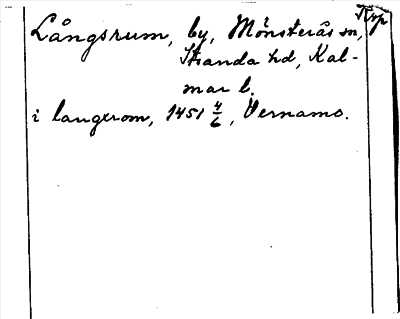 Krp
Långsrum, by, Mönsterås sn,
Stranda hd, Kal-
mar l.
i langxrom, 1451 4/6, Vernamo.